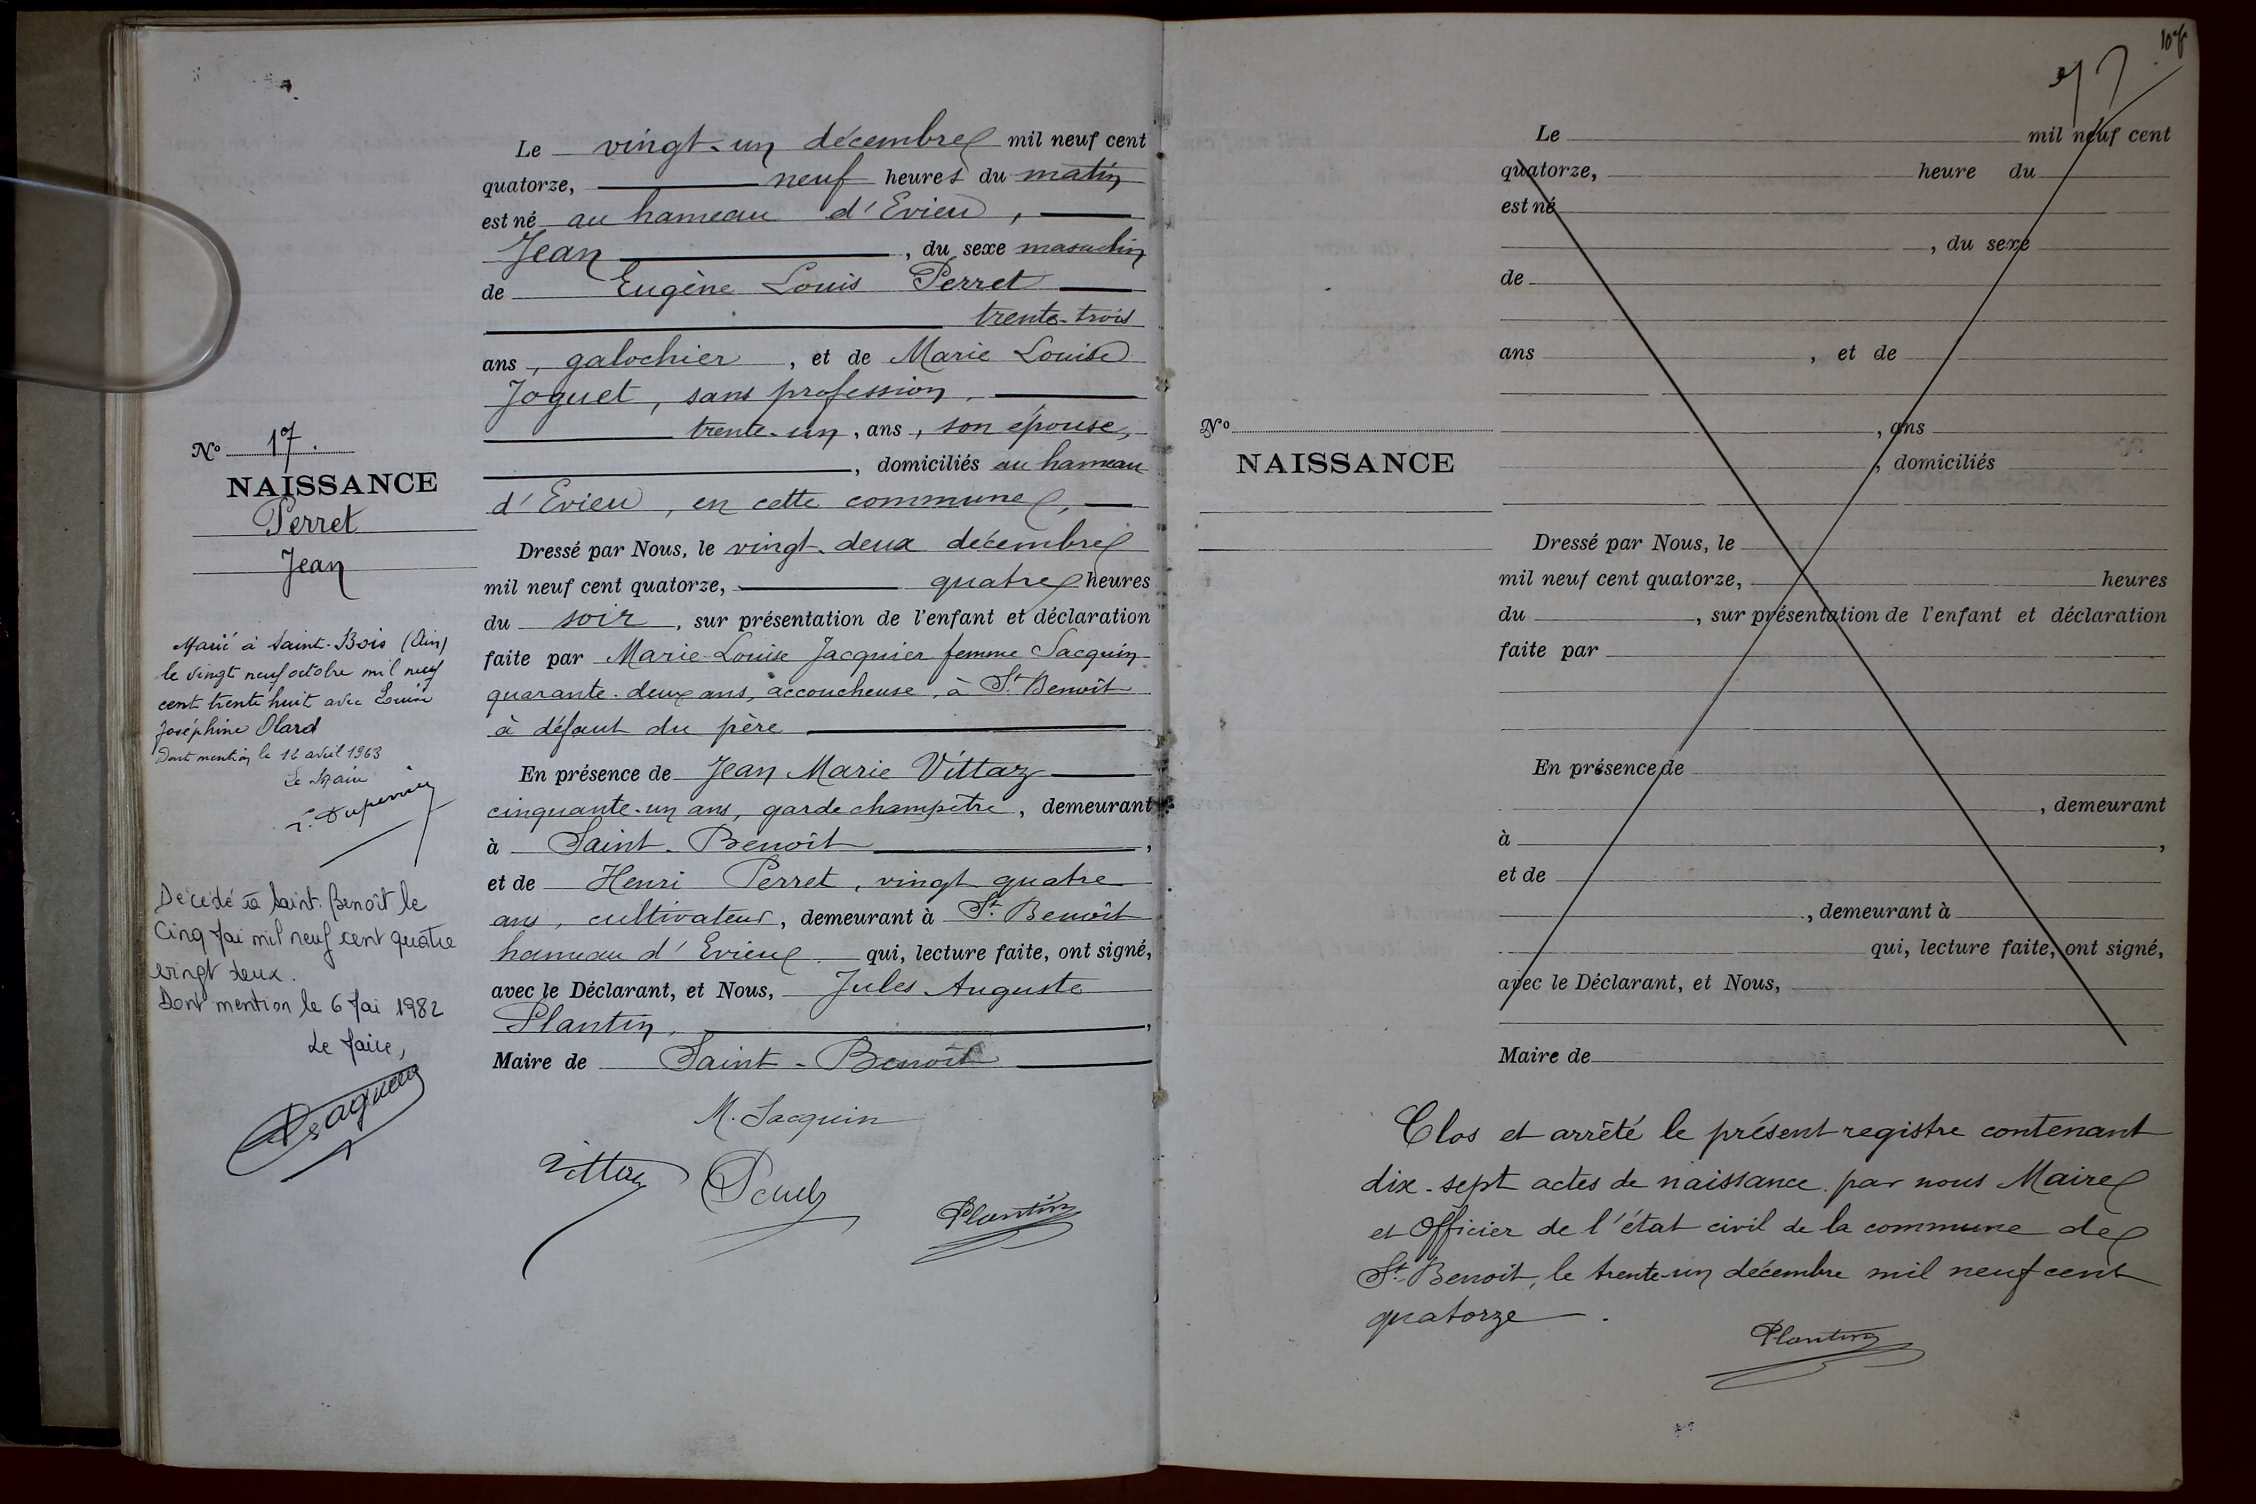 N° 17.
NAISSANCE
Perret
Jean
Marié à Saint-Bois (Ain)
le vingt neuf octobre mil neuf
cent trente huit avec Louise
Joséphine Olard
Dont mention le 16 avril 1963
Le Maire
Décédé à Saint-Benoît le
Cinq Mai mil neuf cent quatre
vingt deux.
Dont mention le 6 Mai 1982
Le Maire,
Le vingt-un décembre mil neuf cent
quatorze, neuf heures du matin
est né au hameau d'Evieu,
Jean, du sexe masculin
de Eugène Louis Perret
trente-trois
ans, galochier, et de Marie Louise
Joguet, sans profession,
trente-un, ans, son épouse,
, domiciliés au hameau
d'Evieu, en cette commune,
Dressé par Nous, le vingt-deux décembre
mil neuf cent quatorze, quatre heures
du soir, sur présentation de l'enfant et déclaration
faite par Marie-Louise Jacquier femme Jacquin
quarante-deux ans, accoucheuse, à St Benoît
à défaut du père
En présence de Jean Marie Vittaz
cinquante-un ans, garde champêtre, demeurant
à Saint-Benoît,
et de Henri Perret, vingt quatre
ans, cultivateur, demeurant à St Benoît
hameau d'Evieu qui, lecture faite, ont signé,
avec le Déclarant, et Nous, Jules Auguste
Plantin,
Maire de Saint-Benoît
M. Jacquin
Vittaz
Plantin
Le mil neuf cent
quatorze, heure du
est né
, du sexe
de
ans , et de
, ans
N°
NAISSANCE
, domiciliés
Dressé par Nous, le
mil neuf cent quatorze, heures
du , sur présentation de l'enfant et déclaration
faite par
En présence de
, demeurant
à ,
et de
, demeurant à
qui, lecture faite, ont signé,
avec le Déclarant, et Nous,
Maire de
Clos et arrêté le présent registre contenant
dix-sept actes de naissance par nous Maire
et Officier de l'état civil de la commune de
St Benoit, le trente-un décembre mil neuf cent
quatorze.
Plantin